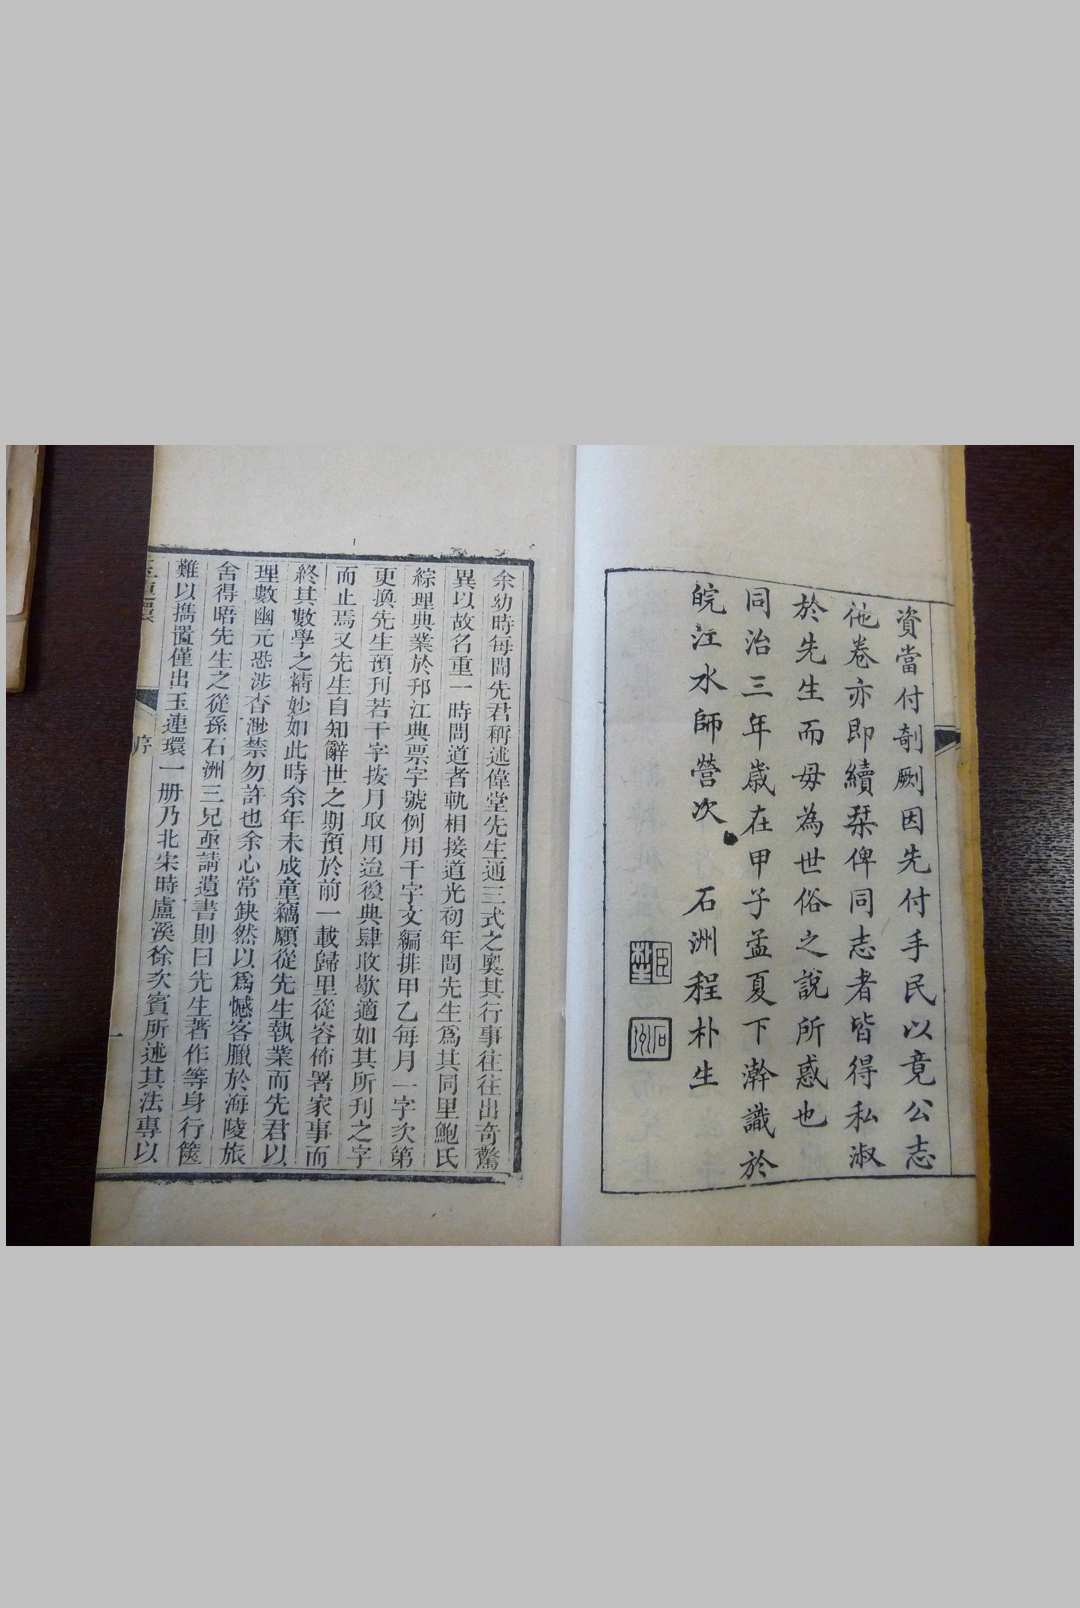 資當付剞劂因先付手民以竟公志
他卷亦即續栞俾同志者皆得私淑
於先生而毋為世俗之說所惑也
同治三年歲在甲子孟夏下澣識於
皖江水師營次 石洲程朴生
余幼時每聞先君稱述偉堂先生通三式之奧其行事往往出奇驚
異以故名重一時問道者軌相接道光初年間先生為其同里鮑氏
綜理典業於邗江典票字號例用千字文編排甲乙每月一字次第
更換先生預刊若干字按月取用迨後典肆收歇適如其所刊之字
而止焉又先生自知辭世之期預於前一載歸里從容佈署家事而
終其數學之精妙如此時余年未成童竊願從先生執業而先君以
理數幽元恐涉杳渺禁勿許也余心常缺然以爲憾客臘於海陵旅
舍得晤先生之從孫石洲三兄亟請遺書則曰先生著作等身行篋
難以攜置僅出玉連環一册乃北宋時盧溪徐次賓所述其法專以
玉連環
序
一